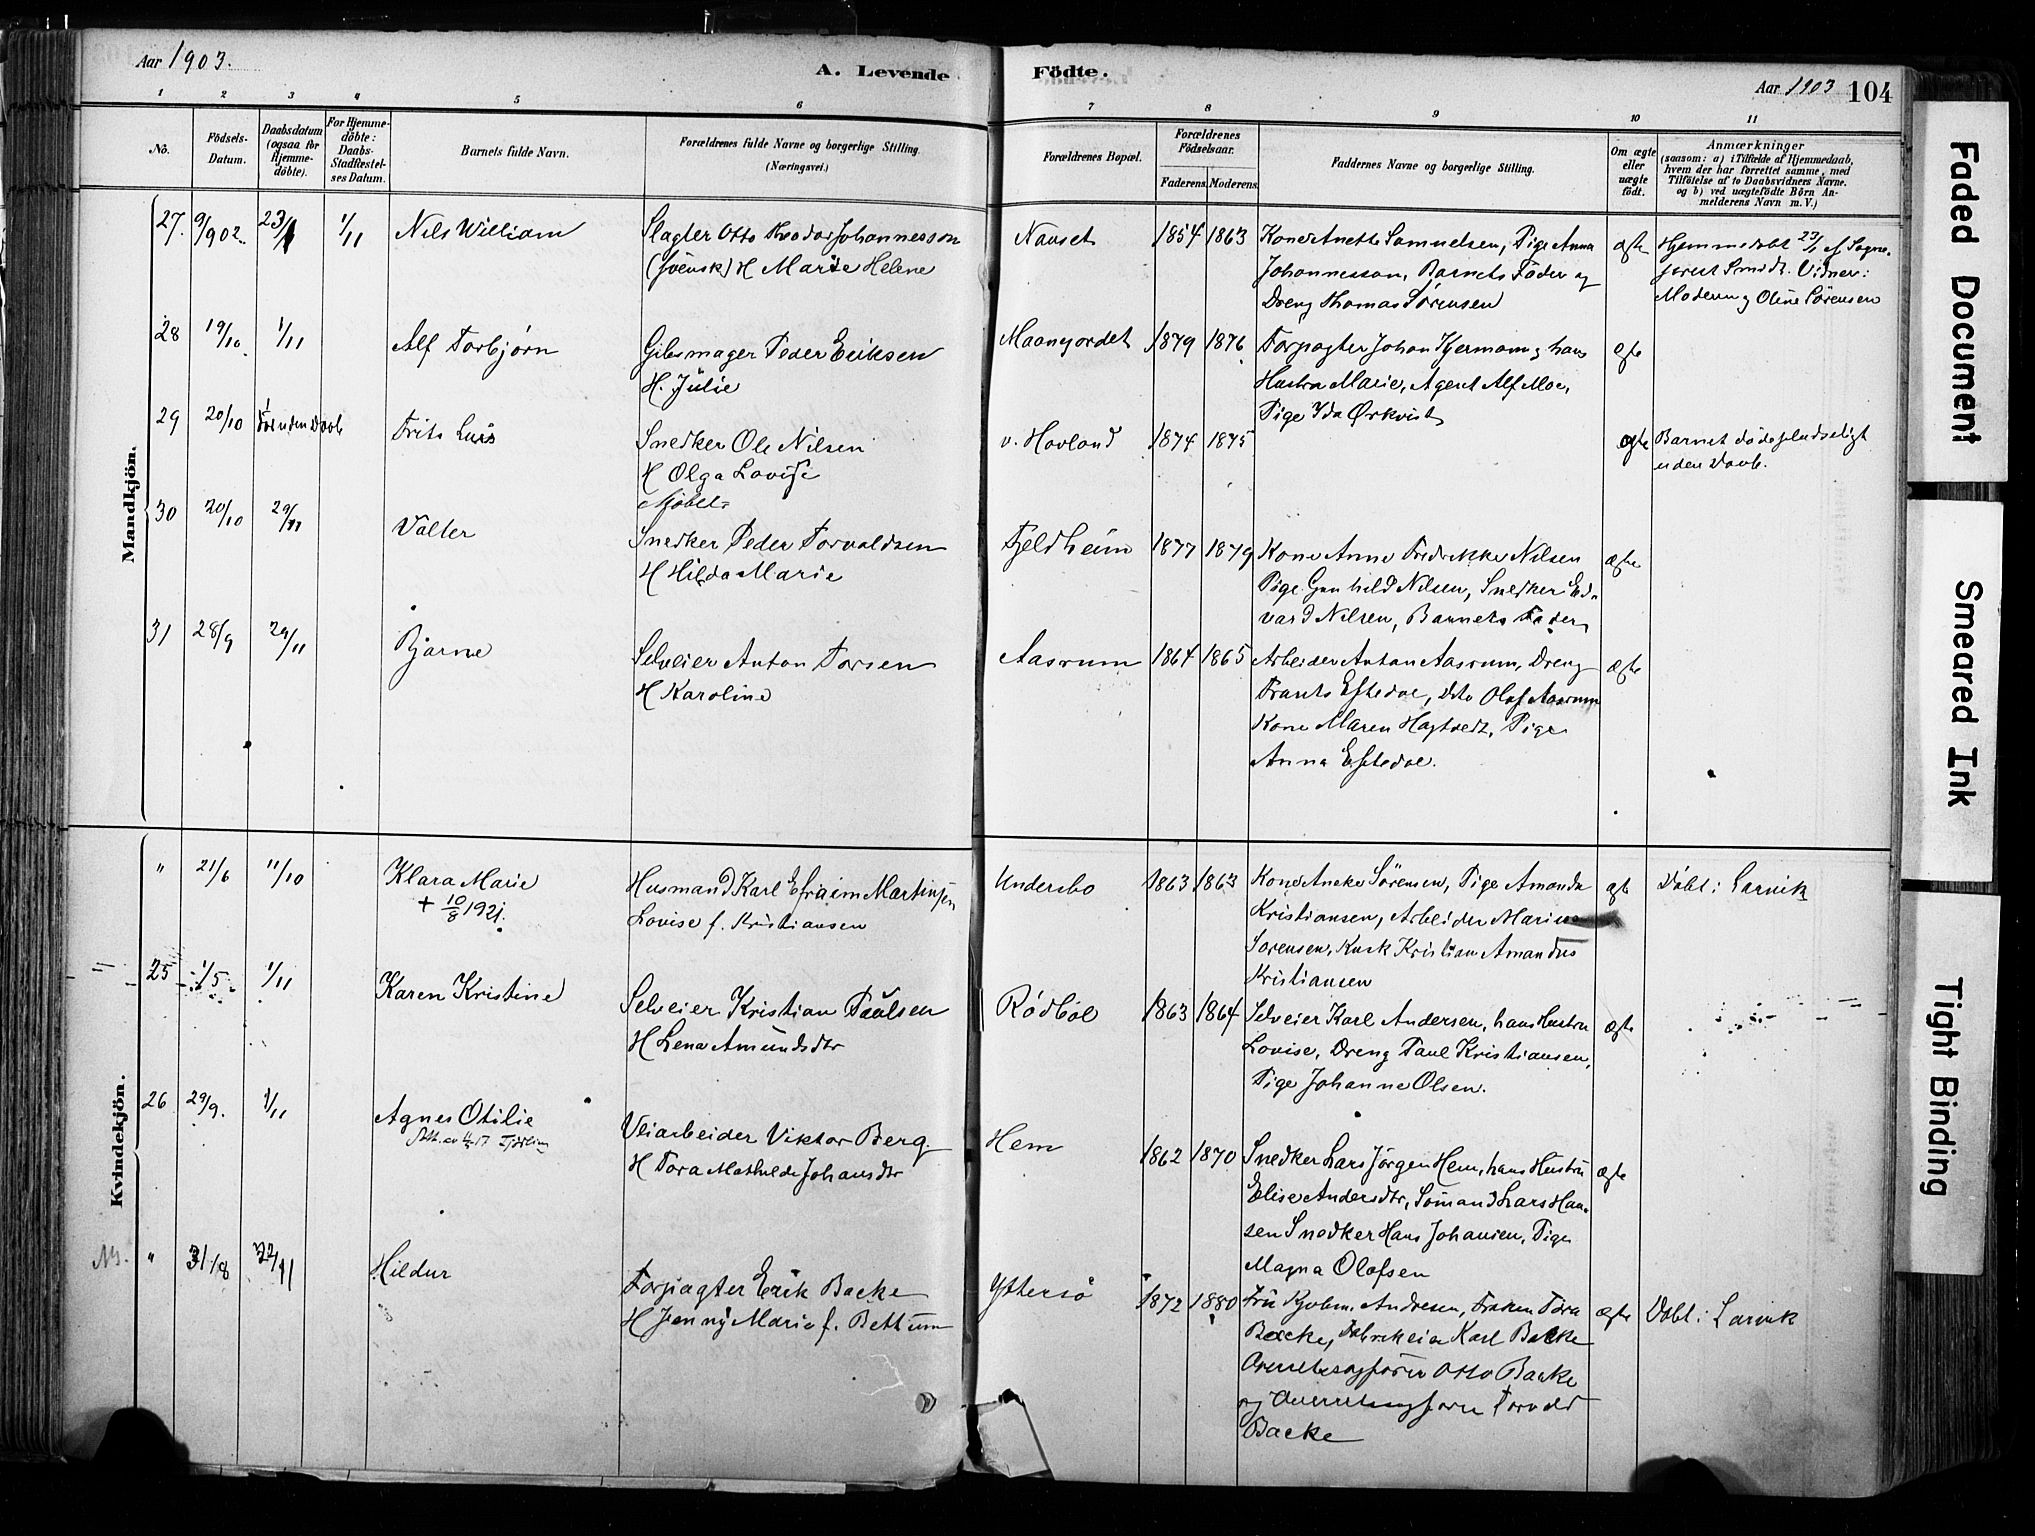 Aar 1903.
A. Levende Födte.
Aar 1903 104
1 2 3 4 5 6 7 8 9 10 11
No.
Födsels-Datum.
Daabsdatum (ogsaa for Hjemme-döbte).
For Hjemme-döbte: Daabs-Stadfæstel-ses Datum.
Barnets fulde Navn.
Forældrenes fulde Navne og borgerlige Stilling.
(Næringsvei.)
Forældrenes Bopæl.
Forældrenes Födselsaar.
Faderens. Moderens.
Faddernes Navne og borgerlige Stilling.
Om ægte eller uægte födt.
Anmærkninger
(saasom: a) i Tilfælde af Hjemmedaab,
hvem der har forrettet samme, med
Tilföielse af to Daabsvidners Navne.
og b) ved uægtefödte Börn An-
melderens Navn m. V.)
Mandkjön.
27. 9/902. 23/1 1/11 Nils William
Slagter Otto Teodor Johannesson
(svensk) H Marie Helene
Nanset 1854 1863
Kone Anette Samuelsen, Pige Anna
Johannesson, Barnets Fader og
Dreng Thomas Sørensen
ægte
Hjemmedøbt 23/1 af Sogne-
prest Smidt. Vidner:
Moderen og Oline Sörensen
28 19/10 1/11 Alf Torbjørn
Peder Eriksen
H. Julie
1879 1876
Forpagter Johan og hans
Hustru Marie, Agent Alf Moe,
Pige Ida Ørkvist
ægte
29 20/10 Frits
Snedker Ole Nilsen
H Olga Lovise
v. Hovland 1874 1875
ægte
Barnet døde pludseligt
uden Daab.
30 20/10 29/11 Valter
Møbel-
Snedker Peder Torvaldsen
H Hilda Marie
Fjeldheim 1877 1879
Kone Anne Fredrikke Nilsen
Pige Gunhild Nilsen, Snedker Ed-
vard Nilsen, Barnets Fader
ægte
31 28/9 29/11 Bjarne
Selveier Anton Torsen
H Karoline
Aasrum 1864 1865
Arbeider Anton Aasrum, Dreng
Frants Eftedal, Dito Olaf Aasrum
Kone Maren Hagtvedt, Pige
Anna Eftedal.
ægte
Kvindekjön.
" 21/6 11/10 Klara Marie
+ 10/8 1921.
Husmand Karl Efraim Martinsen
Lovise f. Kristiansen
Undersbo 1863 1863
Kone Aneke Sörensen, Pige Amanda
Kristiansen, Arbeider Marius
Sorensen, Kusk Kristian Amandus
Kristiansen
ægte
Døbt i Larvik
25 1/5 1/11 Karen Kristine
Selveier Kristian Paulsen
H Lena Amundsdtr
Rødbøl 1863 1864
Selveier Karl Andersen, hans Hustru
Lovise, Dreng Paul Kristiansen,
Pige Johanne Olsen.
ægte
26 29/9. 1/11 Agnes Otilie
Veiarbeider Viktor Berg.
H Tora Mathilde Johansdtr
Hem 1862 1870
Snedker Lars Jörgen Hem, hans Hustru
Elise Andersdtr, Sömand Lars Han-
sen Snedker Hans Johansen, Pige
Magna Olafsen
ægte
" 31/8 22/11 Hildur
Forpagter Erik Backe
H Jenny Marie f. Bettum
Yttersö 1872 1880
Fru Andresen, Frøken Tora
Backe, Fabrikeier Karl Backe
Overretssagfører Otto Backe
og Overretssagfører
Backe
ægte
Døbt i Larvik
Faded Document
Smeared Ink
Tight Binding